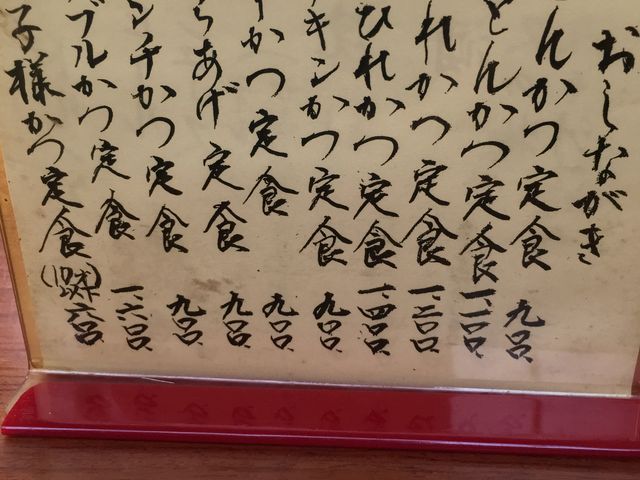 おしながき
んかつ定食 九〇〇
とんかつ定食 一、一〇〇
れかつ定食 一、二〇〇
ひれかつ定食 一、四〇〇
キンかつ定食 九〇〇
かつ定食 九〇〇
らあげ定食 九〇〇
ンチかつ定食 九〇〇
ブルかつ定食 一、六〇〇
子様かつ定食 六〇〇